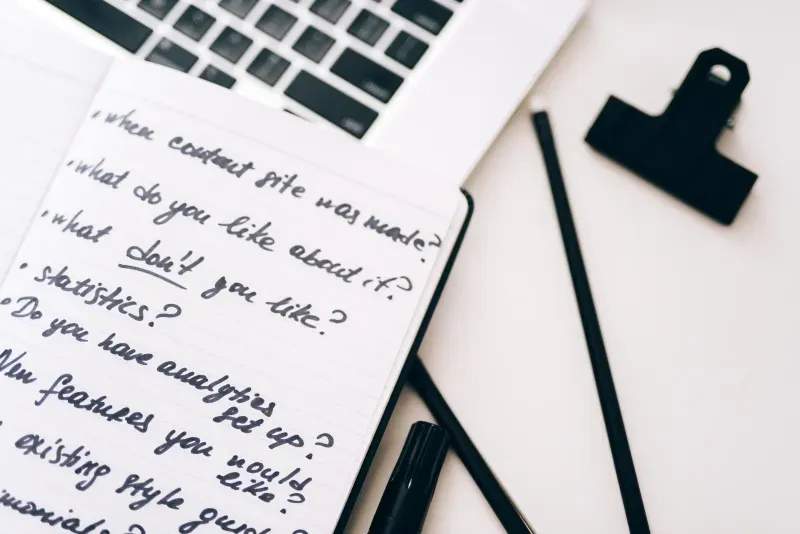 • when site was made?
• what do you like about it?
• what don't you like?
• statistics?
• Do you have analytics
set up?
New features you would
like?
existing style guide
imonials?